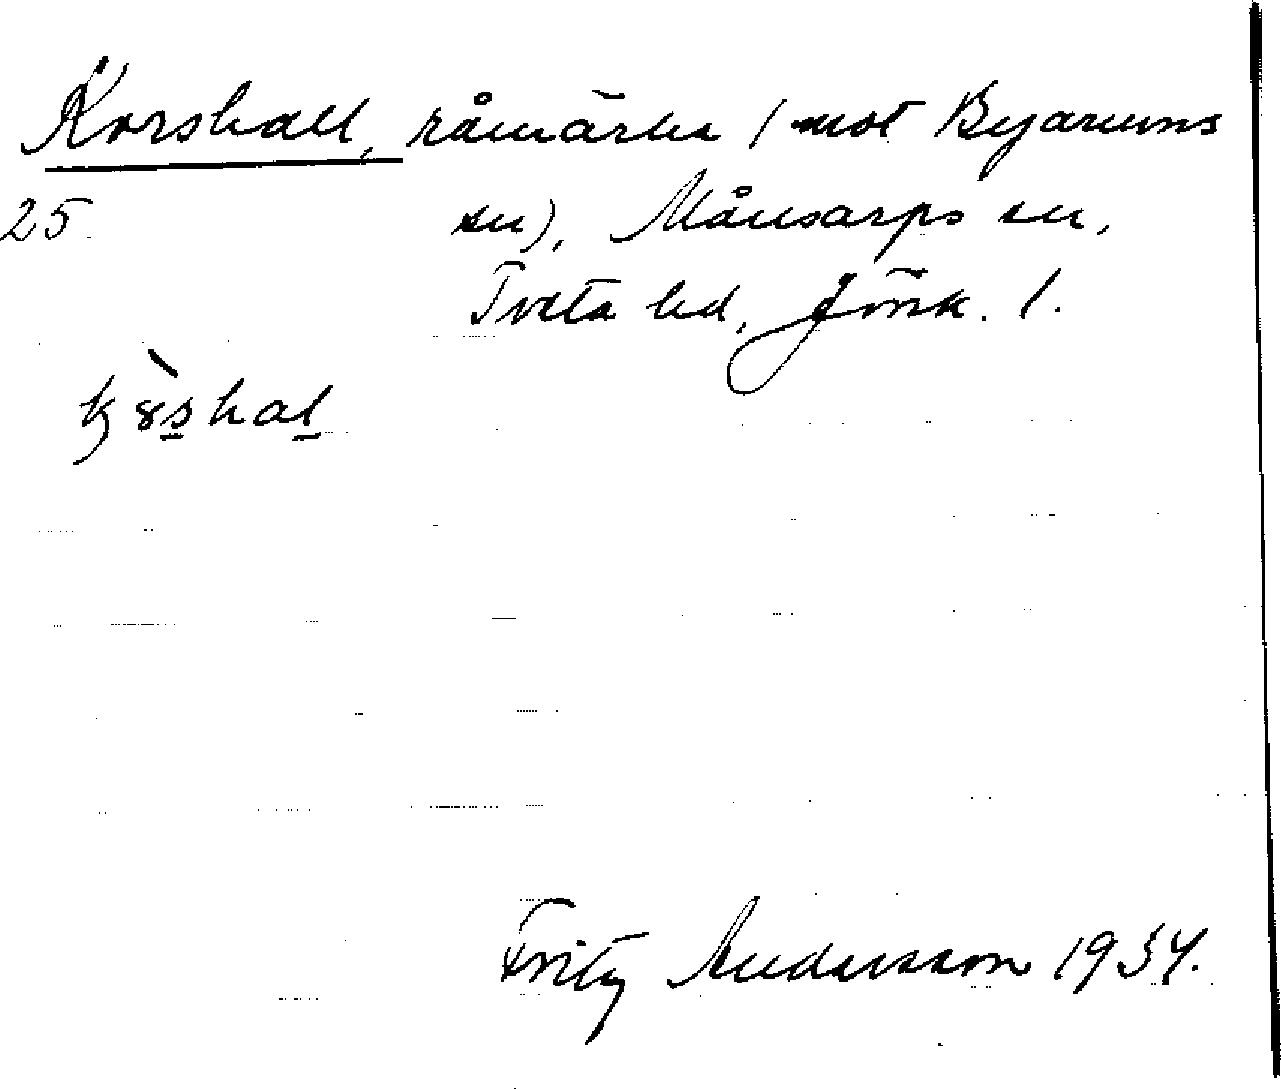 Korshall, råmärke (mot Bjarums
25. sn), Månsarps sn,
Tveta hd, Jönk. l.
Fritz Andersson 1934.